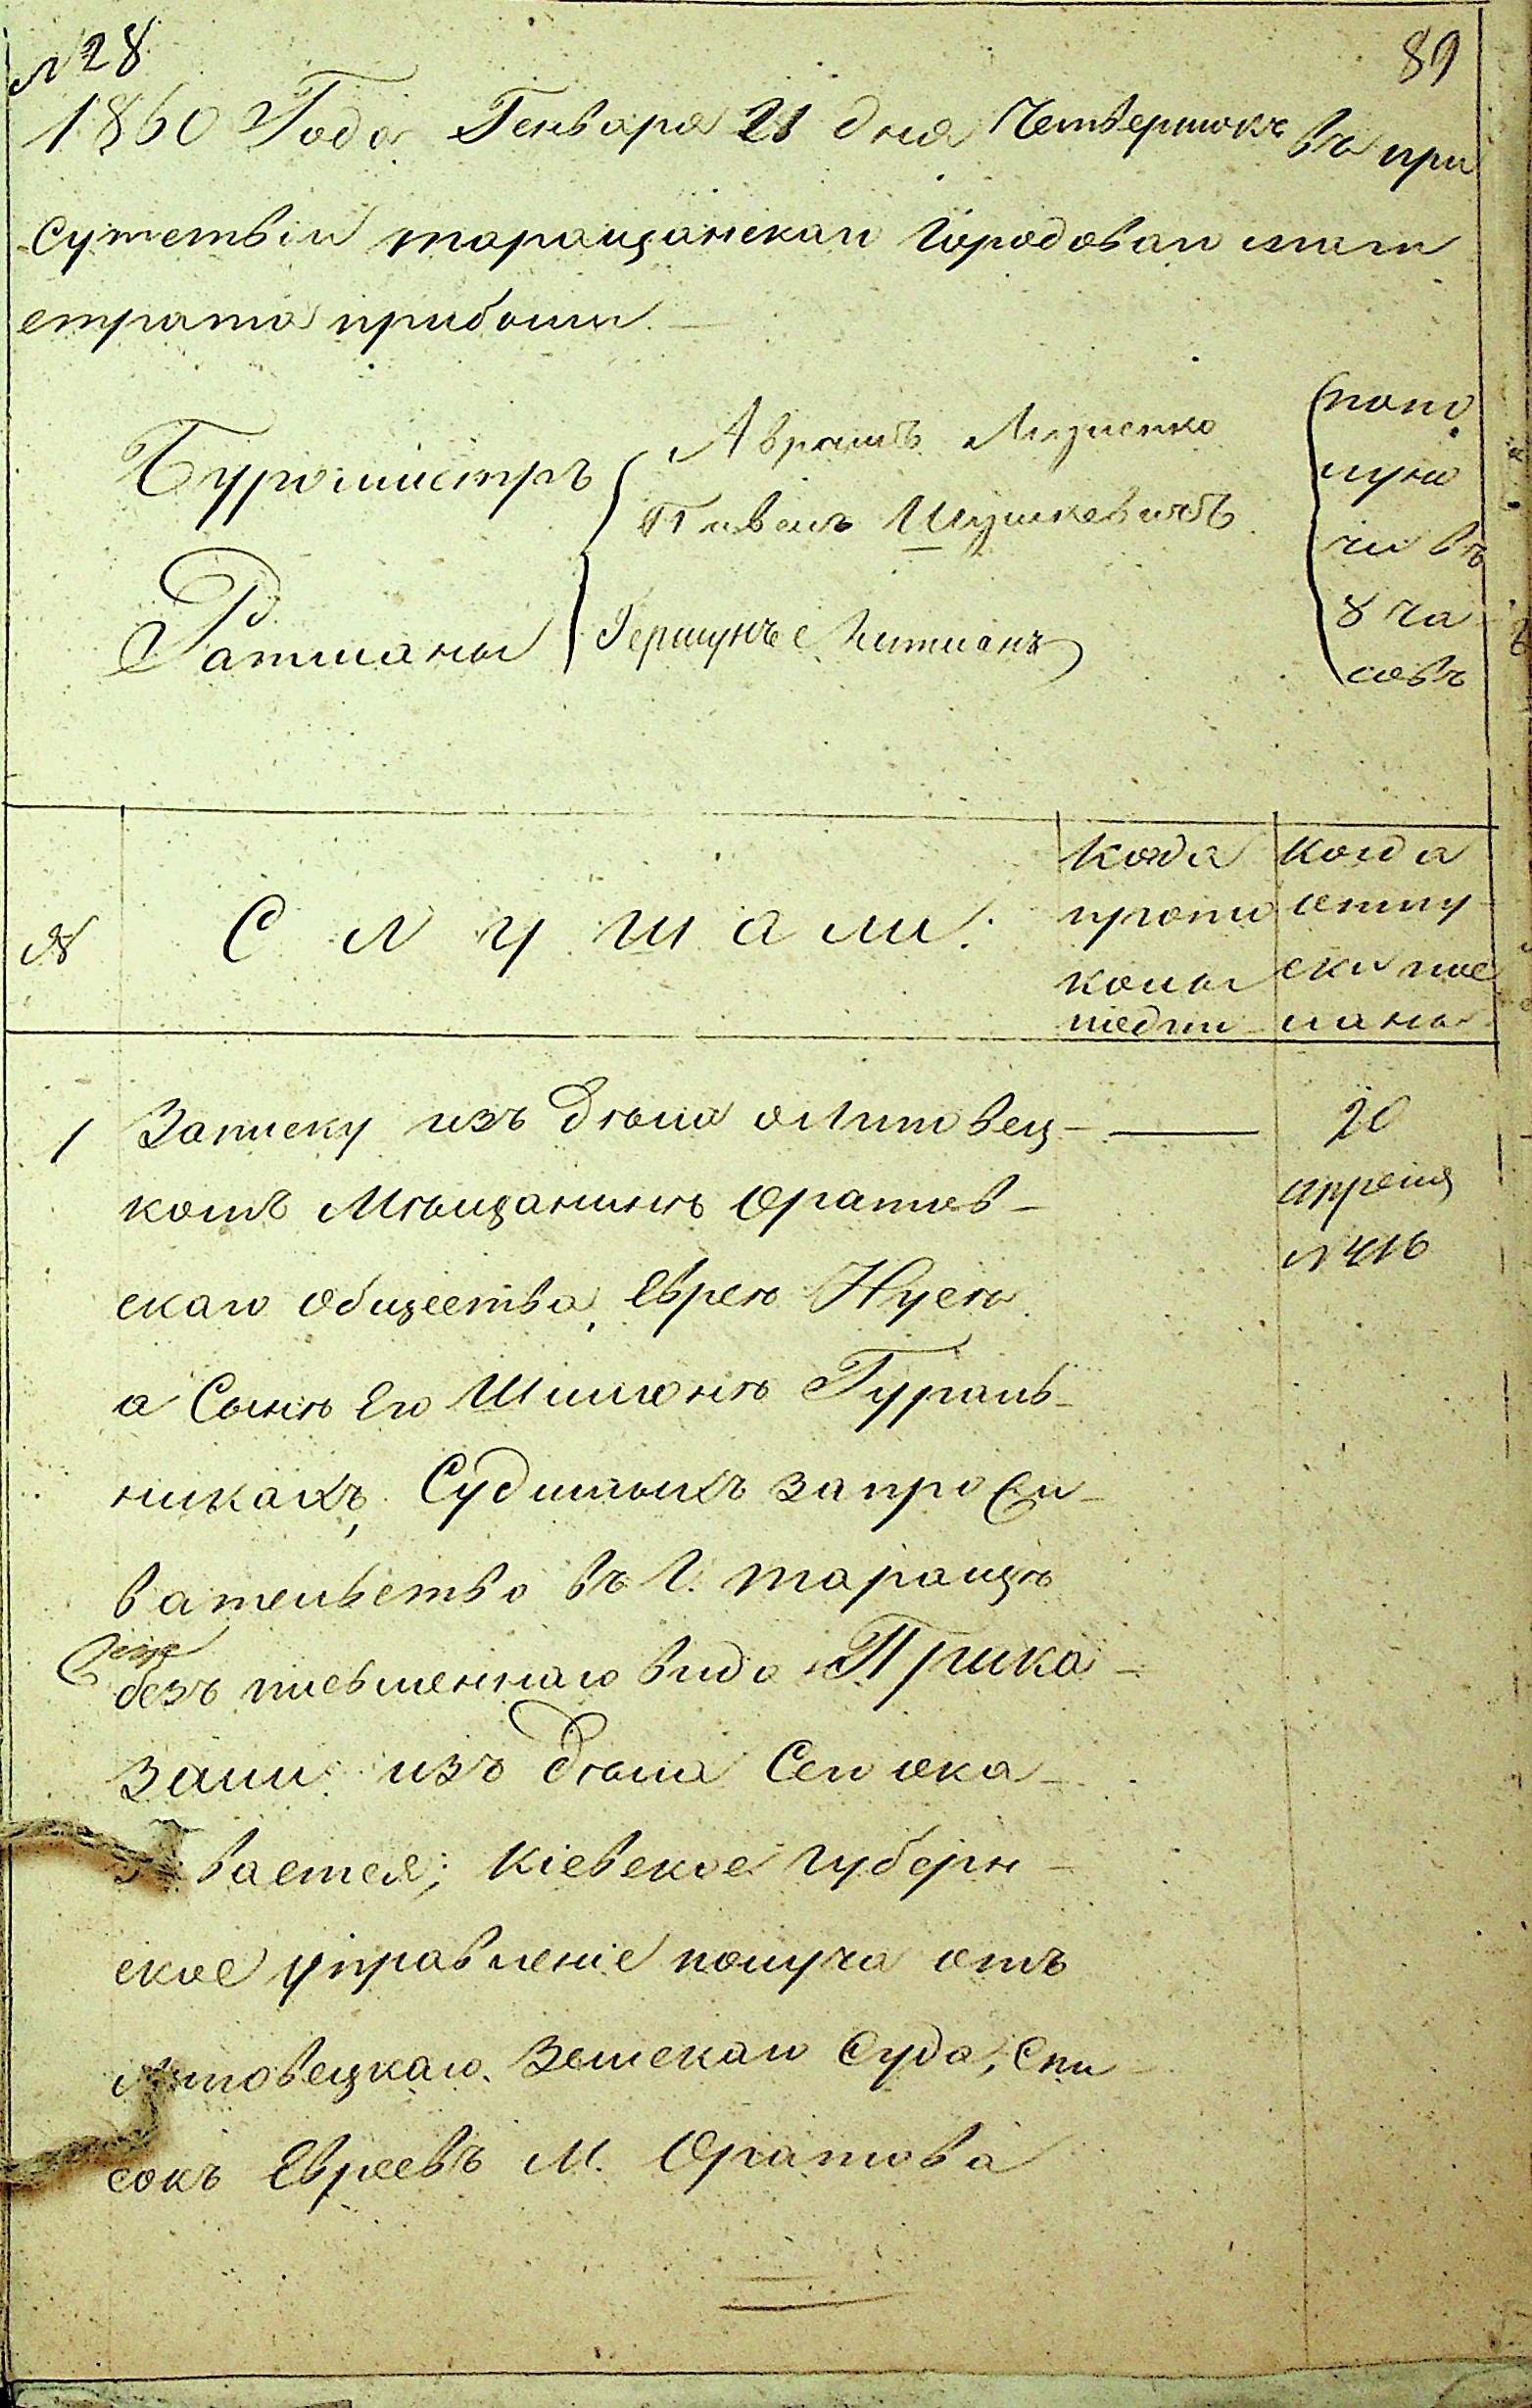 № 28
89
1860 Года Генваря 21 дня Четвертокъ въ при
сутствіи таращанскаго Городоваго маги
страта прибыли. —
Бургомистръ
Авраамъ
Павелъ Шушкевичъ
Ратманы
Гершунъ Литманъ
попо
луно
чи въ
8 ча
совъ
№
Слушали:
Когда
прото
колы
подпи
Когда
отпу
ски пос
ланы
1 Записку изъ дѣла о Липовец— — 20
комъ Мѣщанинѣ Оратов— апреля
скаго общества, Еврею Нусею №416
а Сынѣ Его Шимонѣ Гураль—
никахъ, Судимыхъ за про си—
вательство въ Г. таращѣ
безъ письменнаго вида. Прика—
зали: изъ дѣла Сего ока—
зывается; Кіевское Губерн—
ское управленіе получа отъ
Липовецкаго Земскаго Суда, Спи—
сокъ Евреевъ М. Оратова